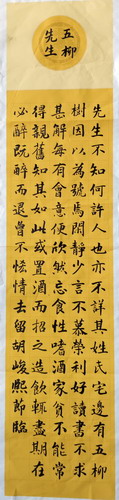 五柳
先生
先生不知何許人也亦不詳其姓氏宅邊有五柳
樹因以為號焉閑靜少言不慕榮利好讀書不求
甚解每有會意便欣然忘食性嗜酒家貧不能常
得親舊知其如此或置酒而招之造飲輒盡期在
必醉既醉而退曾不悋情去留胡峻熙節臨